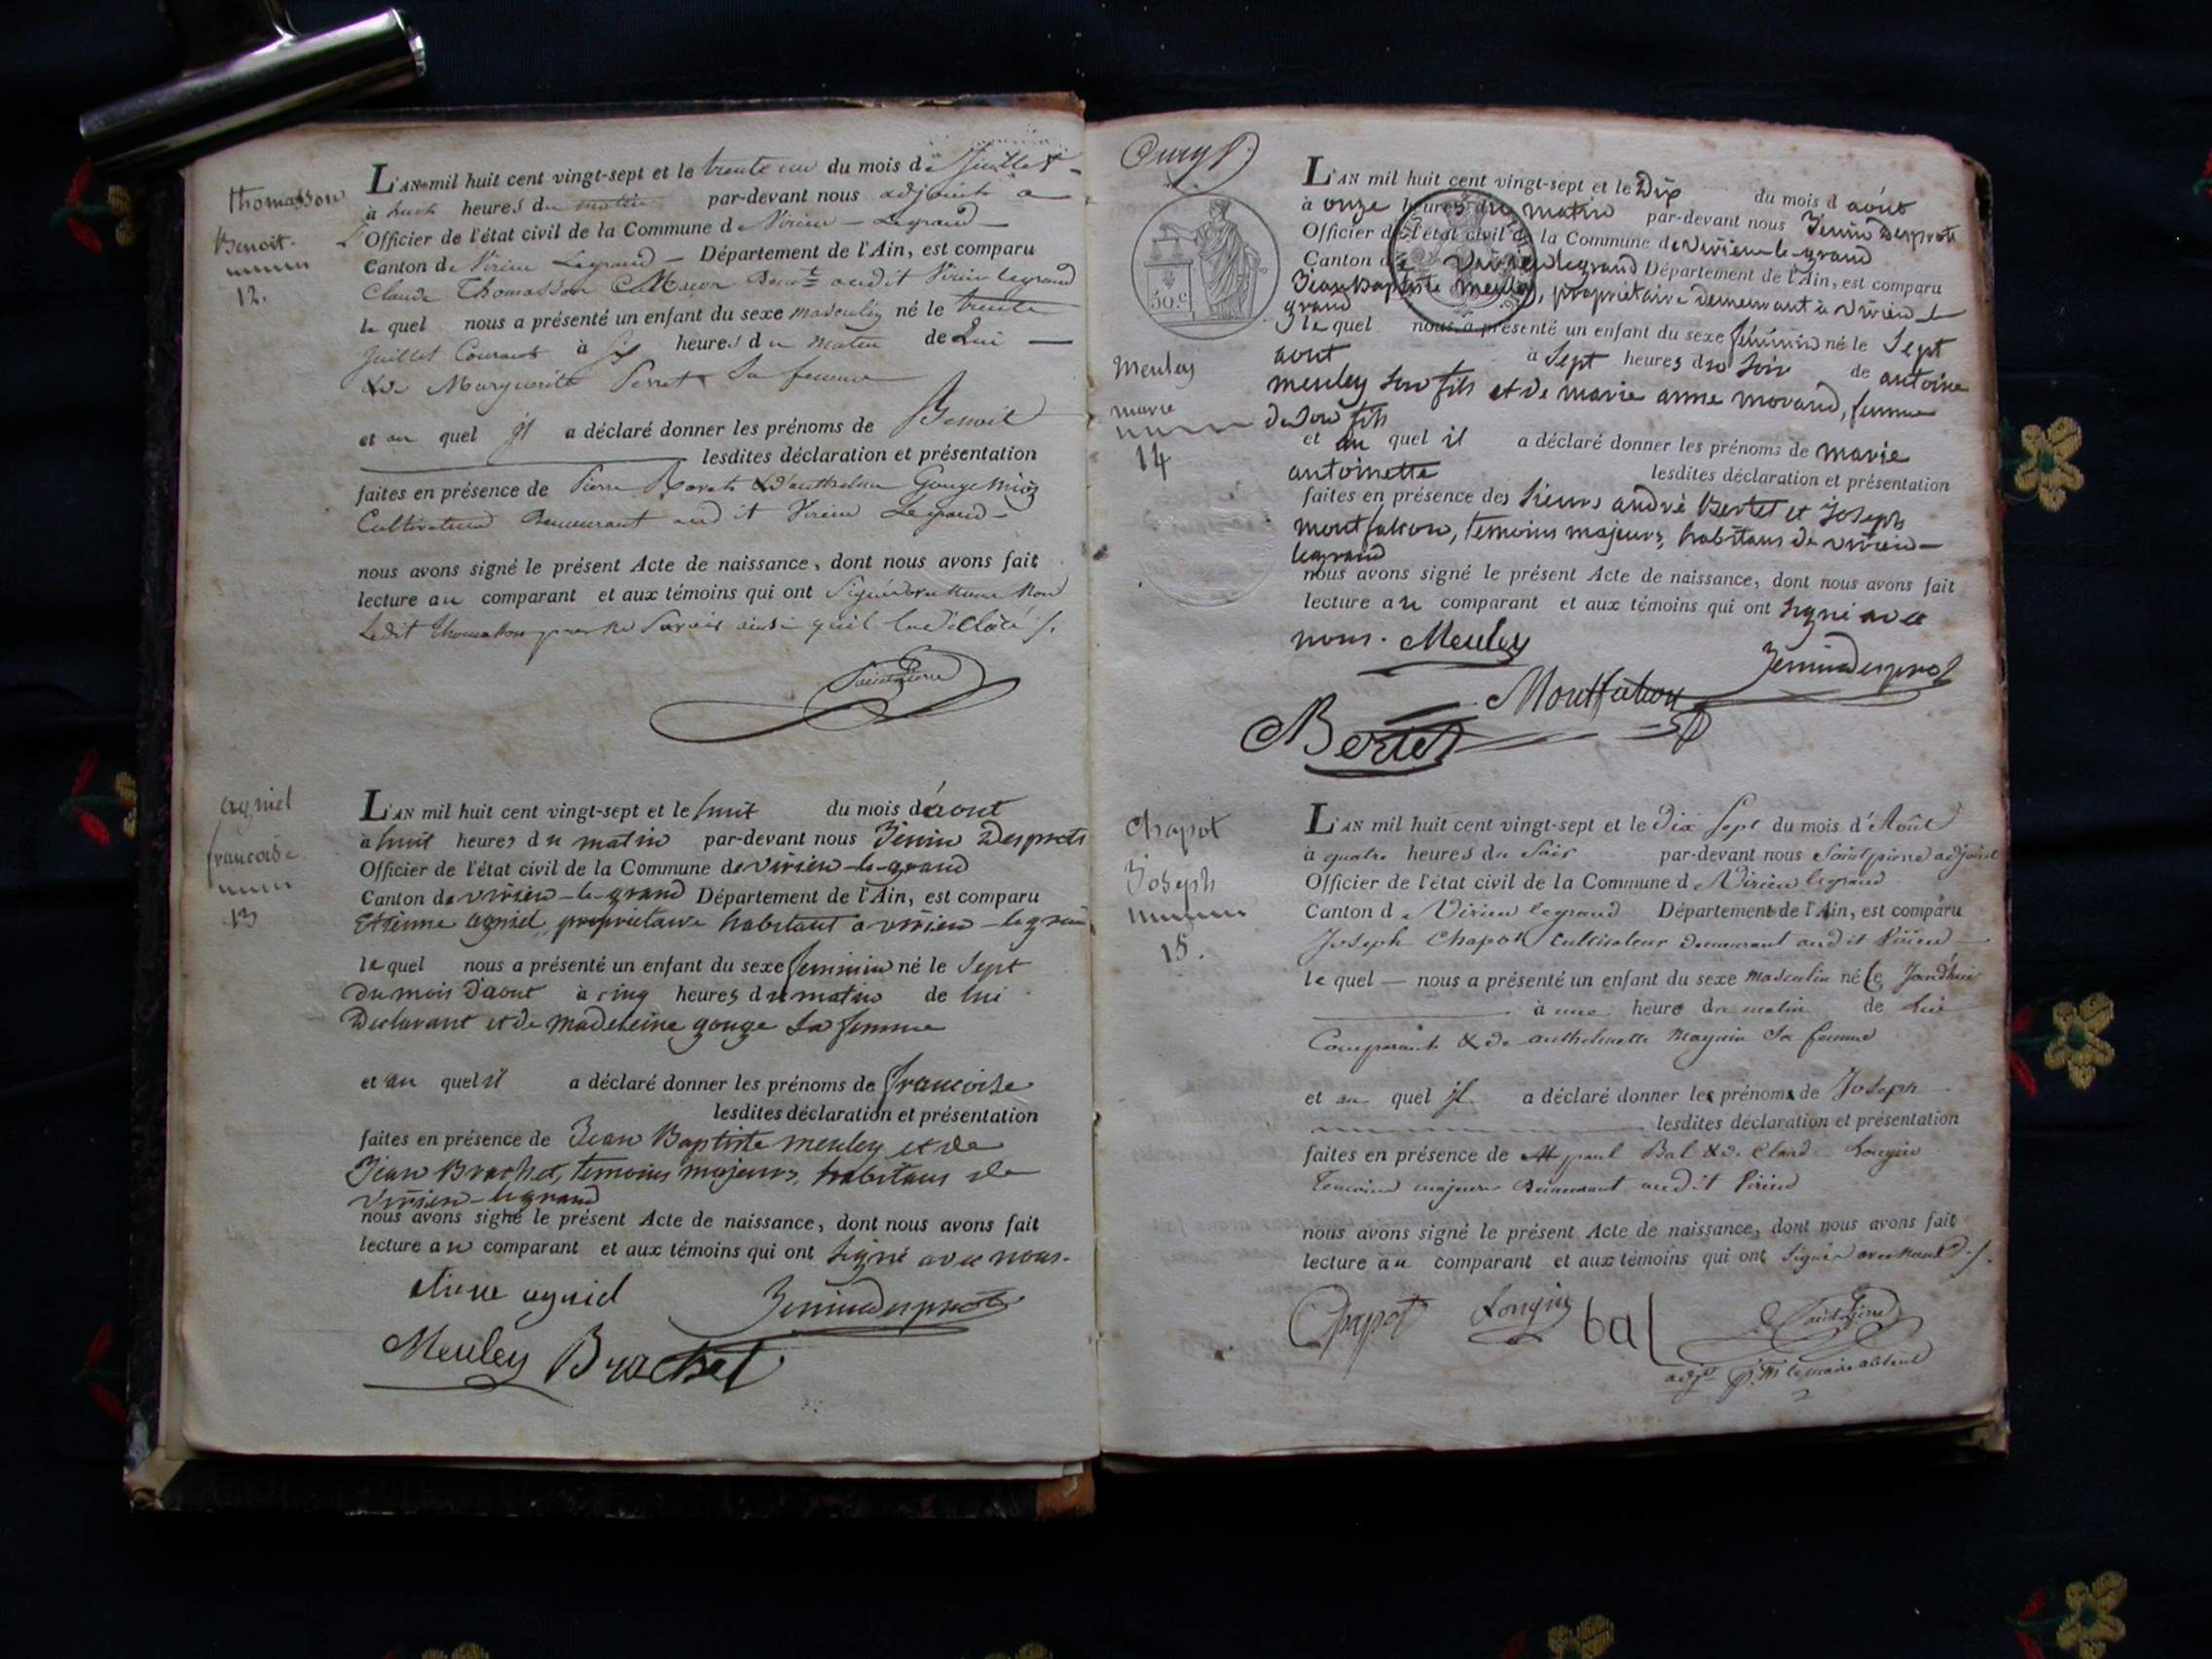 thomasson
Benoit
12.
L'AN mil huit cent vingt-sept et le trente un du mois de Juillet
à huit heures du matin par-devant nous adjoint a
L'Officier de l'état civil de la Commune de Virieu Legrand
Canton de Virieu Legrand Département de l'Ain, est comparu
Claude Thomasson Macon audit Virieu legrand
le quel nous a présenté un enfant du sexe masculin né le trente
Juillet Courant à six heures du matin de Lui
& de Marguerite Perret Sa femme
et au quel Il a déclaré donner les prénoms de Benoit
lesdites déclaration et présentation
faites en présence de Pierre & d'anthelme Gouge
Cultivateurs Demeurant audit Virieu Legrand
nous avons signé le présent Acte de naissance, dont nous avons fait
lecture au comparant et aux témoins qui ont Non
Ledit thomasson pour ne Savoir ainsi quil la déClaré
Saintpierre
agniel
francoise
13
L'AN mil huit cent vingt-sept et le huit du mois d'aout
à huit heures du matin par-devant nous Jenin Desprots
Officier de l'état civil de la Commune de virieu-le-grand
Canton de virieu-le-grand Département de l'Ain, est comparu
Etienne agniel, propriétaire habitant a virieu-legrand
le quel nous a présenté un enfant du sexe feminin né le Sept
du mois d'aout à cinq heures du matin de lui
Declarant et de madeleine gouge sa femme
et au quel il a déclaré donner les prénoms de francoise
lesdites déclaration et présentation
faites en présence de Jean Baptiste meuley et de
Jean Brachet, temoins majeurs, habitans de
virieu-legrand
nous avons signé le présent Acte de naissance, dont nous avons fait
lecture au comparant et aux témoins qui ont signé avec nous.
etiene agniel Jenin Desprots
Meuley Brachet
50.c
meuley
marie
14
L'AN mil huit cent vingt-sept et le Dix du mois d août
à onze heures du matin par-devant nous Jenin Desprots
Officier de l'état civil de la Commune de virieu-le-grand
Canton de virieu legrand Département de l'Ain, est comparu
Jean Baptiste meuley, propriétaire demeurant à virieu le
grand
le quel nous a présenté un enfant du sexe féminin né le Sept
aout à Sept heures du Soir de antoine
meuley son fils et de marie anne morand, femme
de son fils
et au quel il a déclaré donner les prénoms de marie
antoinette lesdites déclaration et présentation
faites en présence des Sieurs andré Bertet et Joseph
montfalcon, temoins majeurs, habitans de virieu-
legrand
nous avons signé le présent Acte de naissance, dont nous avons fait
lecture au comparant et aux témoins qui ont signé avec
nous. Meuley Jenin Desprots
Montfalcon
Bertet
Chapot
Joseph
15.
L'AN mil huit cent vingt-sept et le Dix Sept du mois d'Août
à quatre heures du Soir par-devant nous Saintpierre adjoint
Officier de l'état civil de la Commune de Virieu legrand
Canton de Virieu legrand Département de l'Ain, est comparu
Joseph Chapot Cultivateur demeurant audit Virieu
le quel nous a présenté un enfant du sexe masculin né
à une heure du matin de lui
Comparant & de anthelmette Magnin Sa femme
et au quel il a déclaré donner les prénoms de Joseph
lesdites déclaration et présentation
faites en présence de paul Bal & de Claude Longin
Temoins majeurs Demeurant audit Virieu
nous avons signé le présent Acte de naissance, dont nous avons fait
lecture au comparant et aux témoins qui ont Signé avec nous
Chapot Longin bal Saintpierre
adjt le maire absent